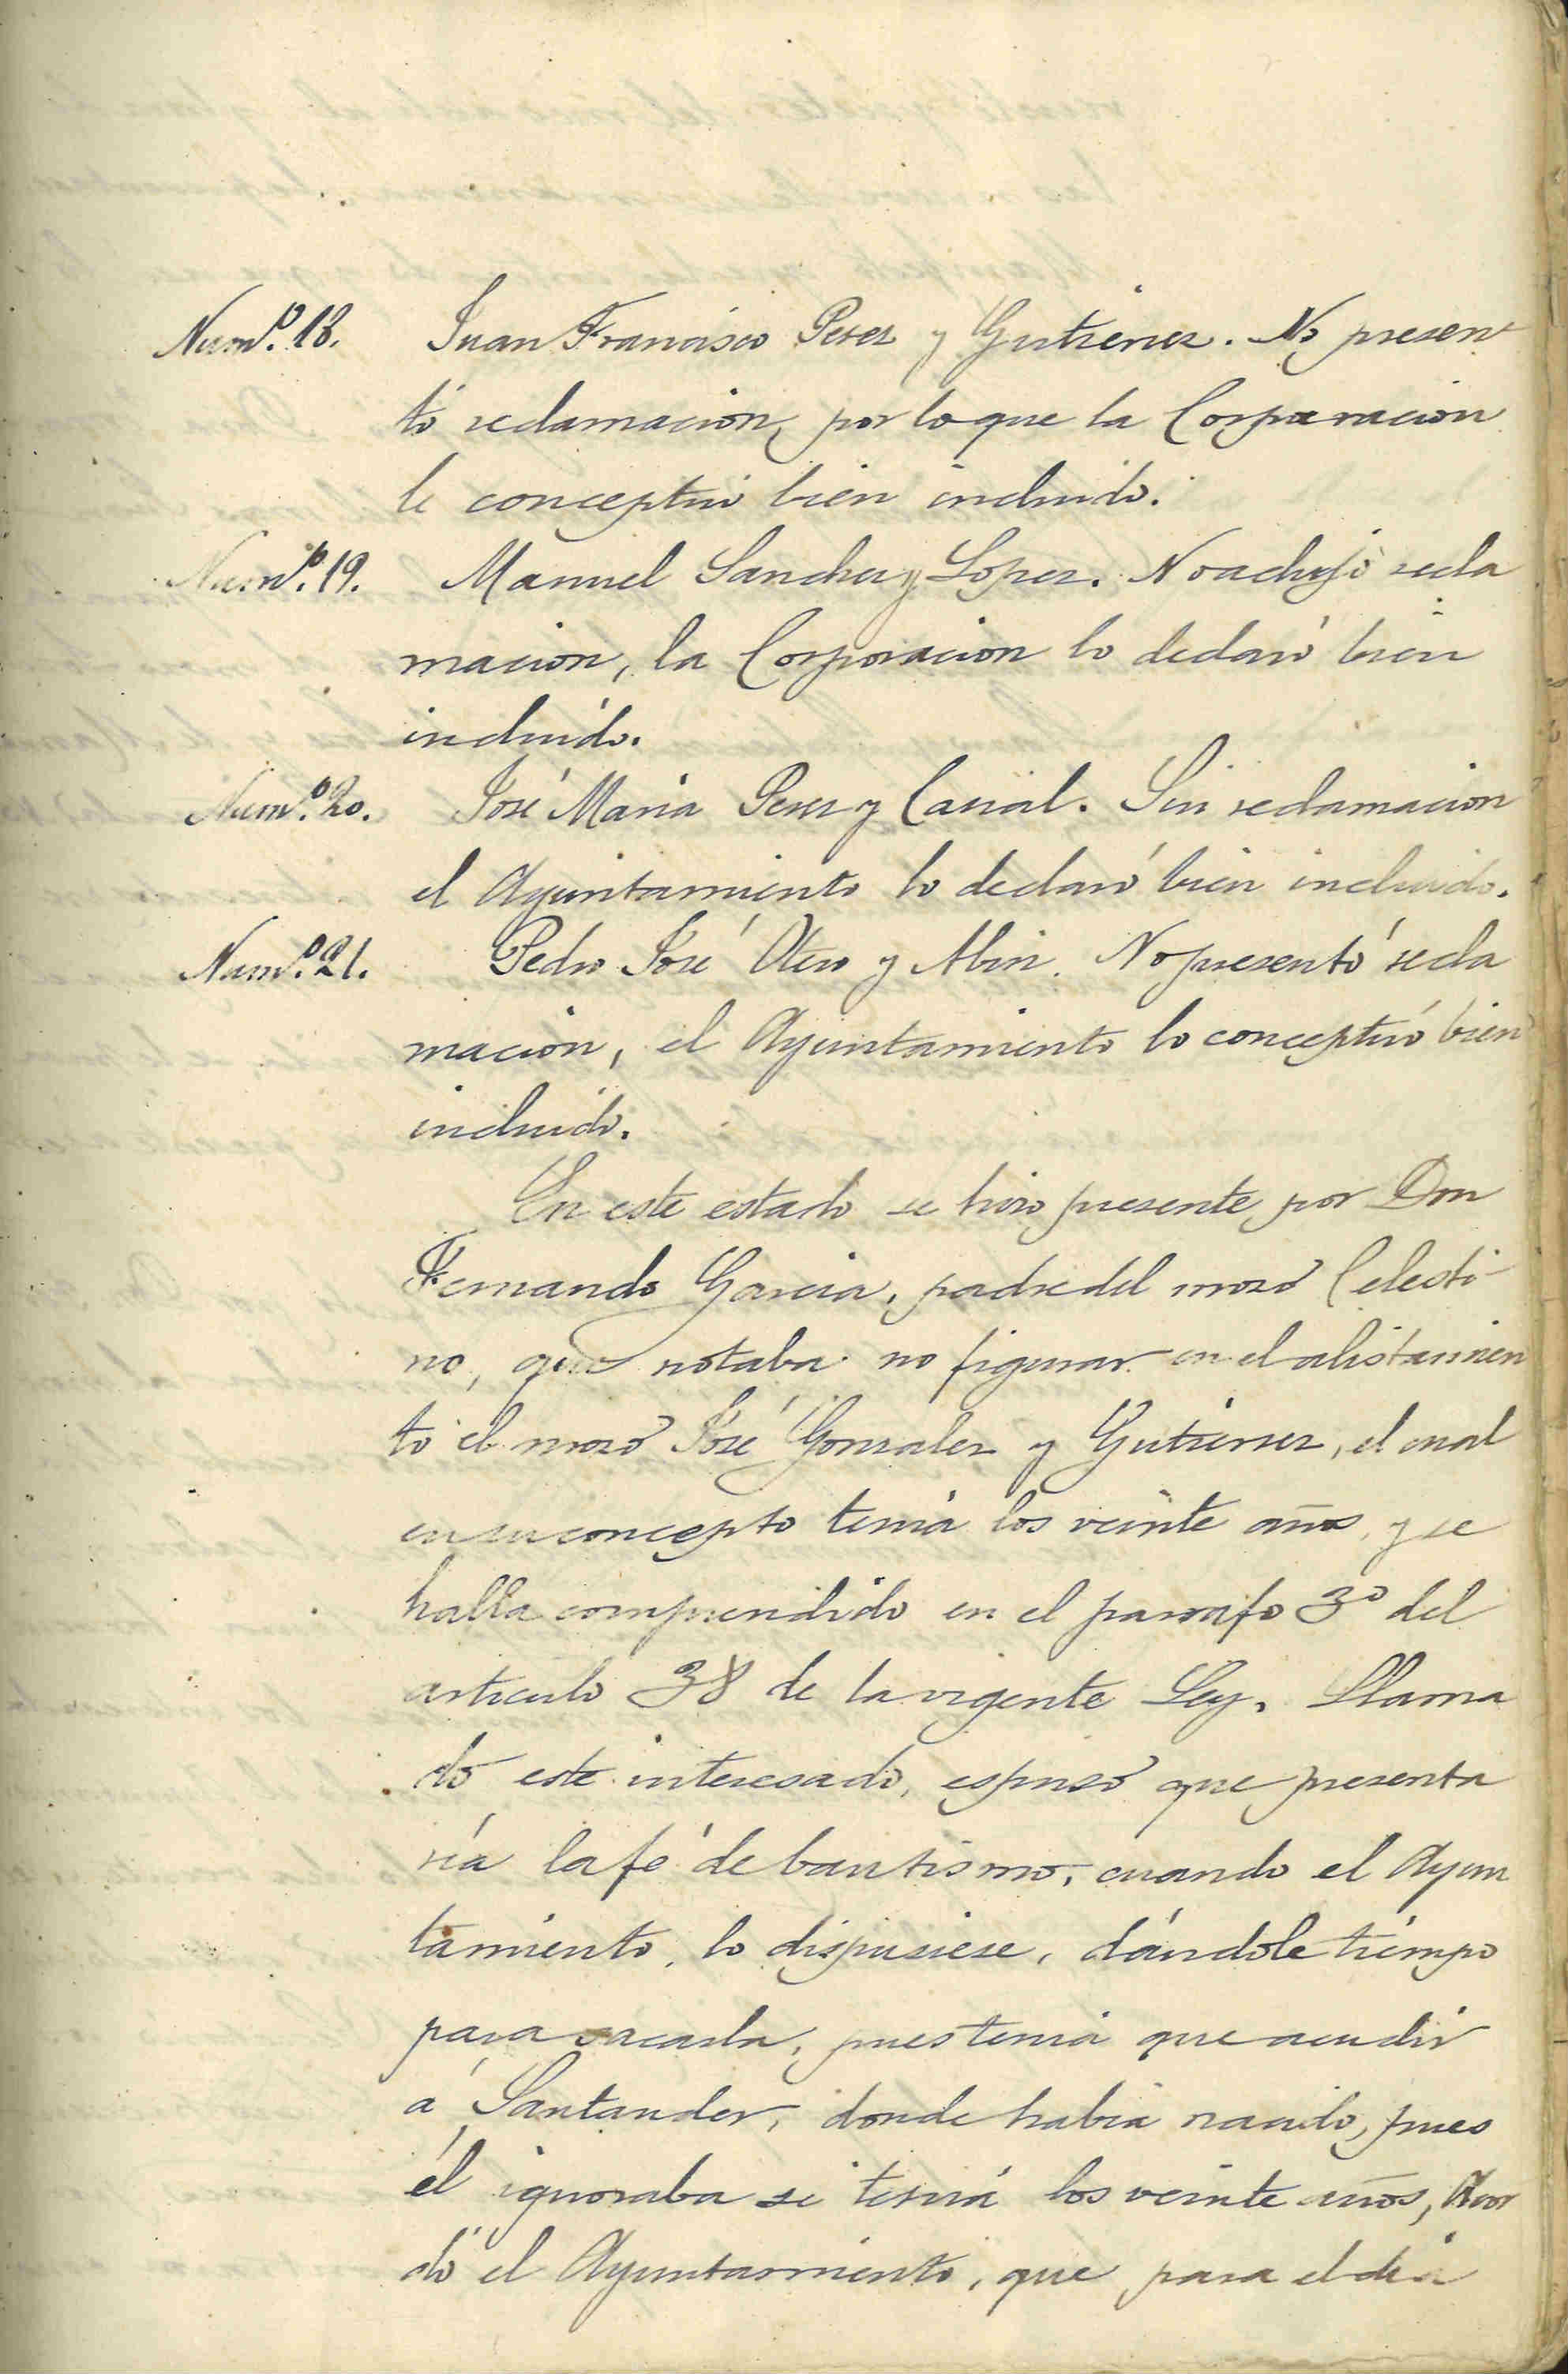 Num.º 18. Juan Francisco Perez y Gutierrez. No presen-
tó reclamacion, por lo que la Corporacion
le conceptuó bien incluido.
Num.º 19. Manuel Sanchez y Lopez. No adujo recla
macion, la Corporacion lo declaró bien
incluido.
Num.º 20. José Maria Perez y Canal. Sin reclamacion
el Ayuntamiento lo declaró bien incluido.
Num.º 21. Pedro José Otero y Abin. No presentó recla
macion, el Ayuntamiento lo conceptuó bien
incluido.
En este estado se hizo presente por Don
Fernando Garcia, padre del mozo Celesti-
no, que notaba no figurar en el alistamien
to el mozo José Gonzalez y Gutierrez, el cual
en su concepto tenia los veinte años, y se
halla comprendido en el parrafo 3º del
articulo 38 de la vigente Ley. Llama
do este interesado, espuso que presenta
ría la fé de bautismo, cuando el Ayun
tamiento, lo dispusiese, dándole tiempo
para sacarla, pues tenia que acudir
á Santander, donde habia nacido, pues
él ignoraba si tenia los veinte años, Acor
dó el Ayuntamiento, que para el dia